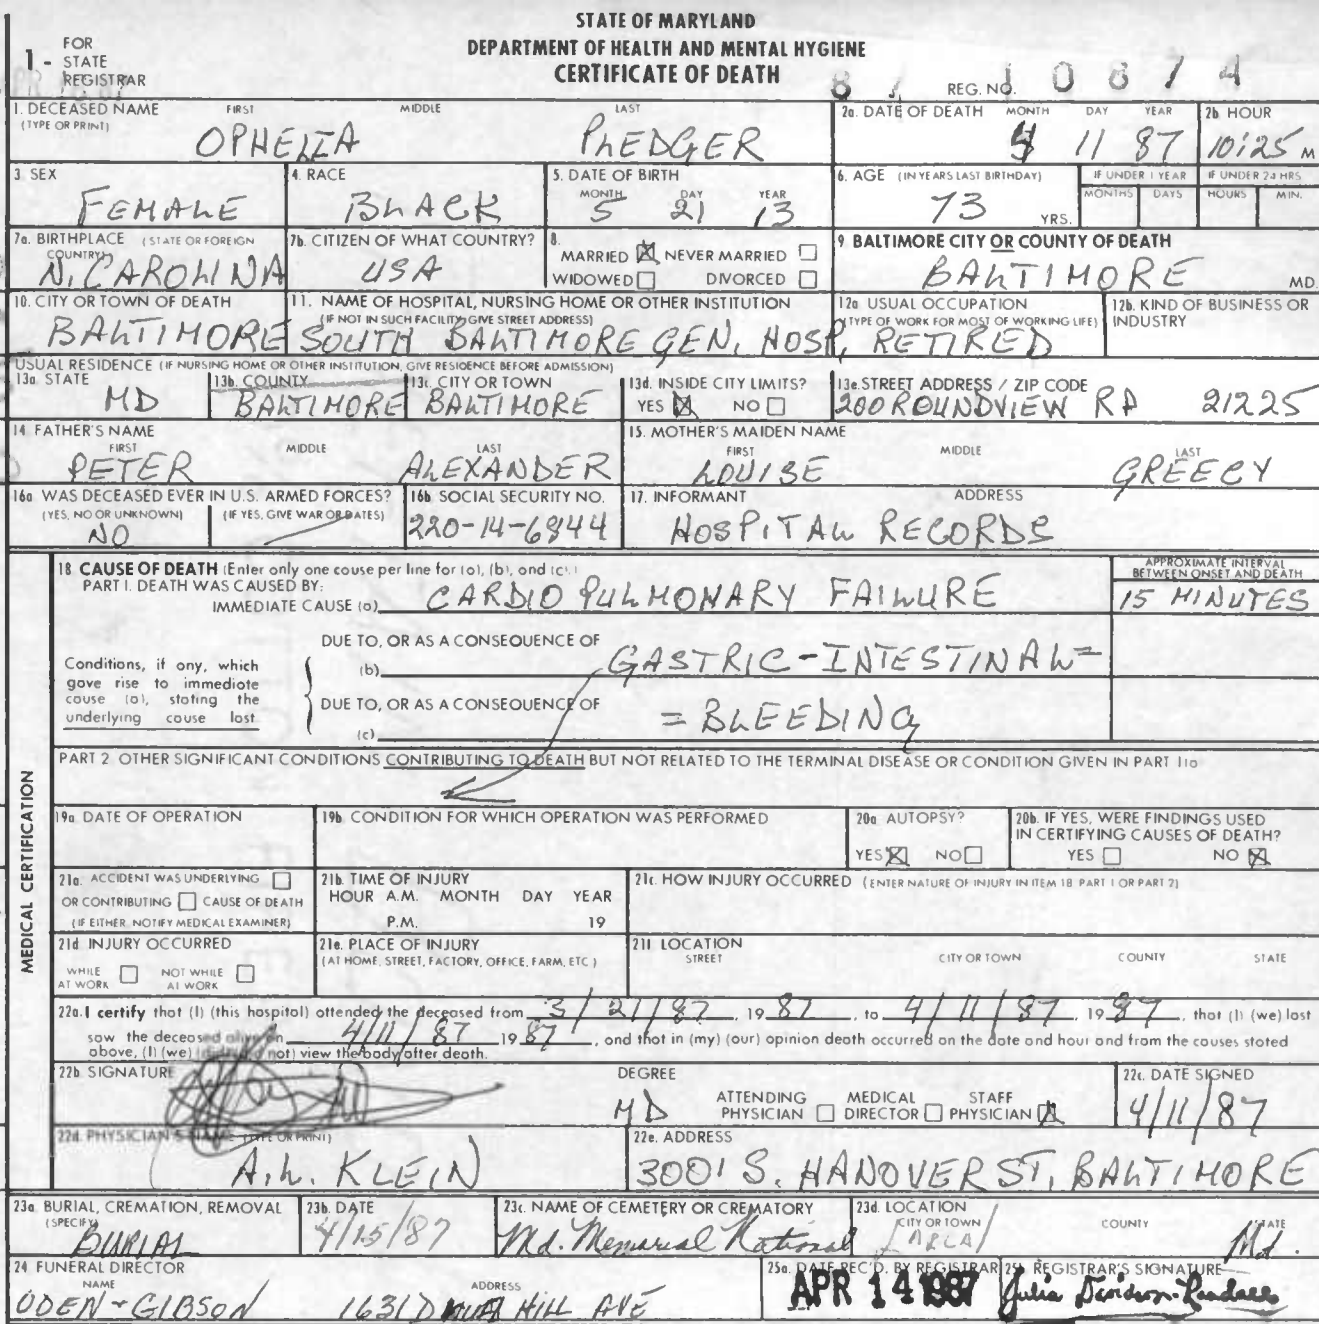 STATE OF MARYLAND
DEPARTMENT OF HEALTH AND MENTAL HYGIENE
CERTIFICATE OF DEATH
1 - FOR STATE REGISTRAR
REG. NO. 87 10674
1. DECEASED NAME (TYPE OR PRINT) FIRST MIDDLE LAST
OPHELIA PLEDGER
2a. DATE OF DEATH MONTH DAY YEAR
4 11 87
2b. HOUR
10:25 M
3. SEX
FEMALE
4. RACE
BLACK
5. DATE OF BIRTH MONTH DAY YEAR
5 21 13
6. AGE (IN YEARS LAST BIRTHDAY)
73 YRS.
IF UNDER 1 YEAR MONTHS DAYS
IF UNDER 24 HRS HOURS MIN.
7a. BIRTHPLACE (STATE OR FOREIGN COUNTRY)
N. CAROLINA
7b. CITIZEN OF WHAT COUNTRY?
USA
8. MARRIED ☒ NEVER MARRIED ☐
WIDOWED ☐ DIVORCED ☐
9. BALTIMORE CITY OR COUNTY OF DEATH
BALTIMORE MD.
10. CITY OR TOWN OF DEATH
BALTIMORE
11. NAME OF HOSPITAL, NURSING HOME OR OTHER INSTITUTION
(IF NOT IN SUCH FACILITY, GIVE STREET ADDRESS)
SOUTH BALTIMORE GEN. HOSP.
12a. USUAL OCCUPATION
(TYPE OF WORK FOR MOST OF WORKING LIFE)
RETIRED
12b. KIND OF BUSINESS OR INDUSTRY
USUAL RESIDENCE (IF NURSING HOME OR OTHER INSTITUTION, GIVE RESIDENCE BEFORE ADMISSION)
13a. STATE
MD
13b. COUNTY
BALTIMORE
13c. CITY OR TOWN
BALTIMORE
13d. INSIDE CITY LIMITS?
YES ☒ NO ☐
13e. STREET ADDRESS / ZIP CODE
200 ROUNDVIEW RD 21225
14. FATHER'S NAME FIRST MIDDLE LAST
PETER ALEXANDER
15. MOTHER'S MAIDEN NAME FIRST MIDDLE LAST
LOUISE GREECY
16a. WAS DECEASED EVER IN U.S. ARMED FORCES?
(YES, NO OR UNKNOWN) (IF YES, GIVE WAR OR DATES)
NO
16b. SOCIAL SECURITY NO.
220-14-6844
17. INFORMANT ADDRESS
HOSPITAL RECORDS
MEDICAL CERTIFICATION
18. CAUSE OF DEATH (Enter only one cause per line for (a), (b), and (c).)
PART I. DEATH WAS CAUSED BY:
IMMEDIATE CAUSE (a) CARDIO PULMONARY FAILURE
APPROXIMATE INTERVAL BETWEEN ONSET AND DEATH
15 MINUTES
Conditions, if any, which gave rise to immediate cause (a), stating the underlying cause last
DUE TO, OR AS A CONSEQUENCE OF
(b) GASTRIC-INTESTINAL=
DUE TO, OR AS A CONSEQUENCE OF
(c) =BLEEDING
PART 2 OTHER SIGNIFICANT CONDITIONS CONTRIBUTING TO DEATH BUT NOT RELATED TO THE TERMINAL DISEASE OR CONDITION GIVEN IN PART 1(a)
19a. DATE OF OPERATION
19b. CONDITION FOR WHICH OPERATION WAS PERFORMED
20a. AUTOPSY?
YES ☒ NO ☐
20b. IF YES, WERE FINDINGS USED IN CERTIFYING CAUSES OF DEATH?
YES ☐ NO ☒
21a. ACCIDENT WAS UNDERLYING ☐
OR CONTRIBUTING ☐ CAUSE OF DEATH
(IF EITHER, NOTIFY MEDICAL EXAMINER)
21b. TIME OF INJURY
HOUR A.M. MONTH DAY YEAR
P.M. 19
21c. HOW INJURY OCCURRED (ENTER NATURE OF INJURY IN ITEM 18 PART 1 OR PART 2)
21d. INJURY OCCURRED
WHILE AT WORK ☐ NOT WHILE AT WORK ☐
21e. PLACE OF INJURY
(AT HOME, STREET, FACTORY, OFFICE, FARM, ETC.)
21f. LOCATION
STREET CITY OR TOWN COUNTY STATE
22a. I certify that (I) (this hospital) attended the deceased from 3/21/87, 19 87, to 4/11/87, 19 87, that (I) (we) last
saw the deceased alive on 4/11/87 19 87, and that in (my) (our) opinion death occurred on the date and hour and from the causes stated
above, (I) (we) not) view the body after death.
22b. SIGNATURE
DEGREE
MD
ATTENDING PHYSICIAN ☐ MEDICAL DIRECTOR ☐ STAFF PHYSICIAN ☒
22c. DATE SIGNED
4/11/87
22d. PHYSICIAN'S NAME (TYPE OR PRINT)
A.L. KLEIN
22e. ADDRESS
3001 S. HANOVER ST, BALTIMORE
23a. BURIAL, CREMATION, REMOVAL (SPECIFY)
BURIAL
23b. DATE
4/15/87
23c. NAME OF CEMETERY OR CREMATORY
Md. Memorial National
23d. LOCATION
CITY OR TOWN COUNTY STATE
Md.
24 FUNERAL DIRECTOR
NAME ADDRESS
ODEN + GIBSON 1631 HILL AVE
25a. DATE REC'D. BY REGISTRAR
APR 14 1987
25b. REGISTRAR'S SIGNATURE
Julia Davidson-Randall